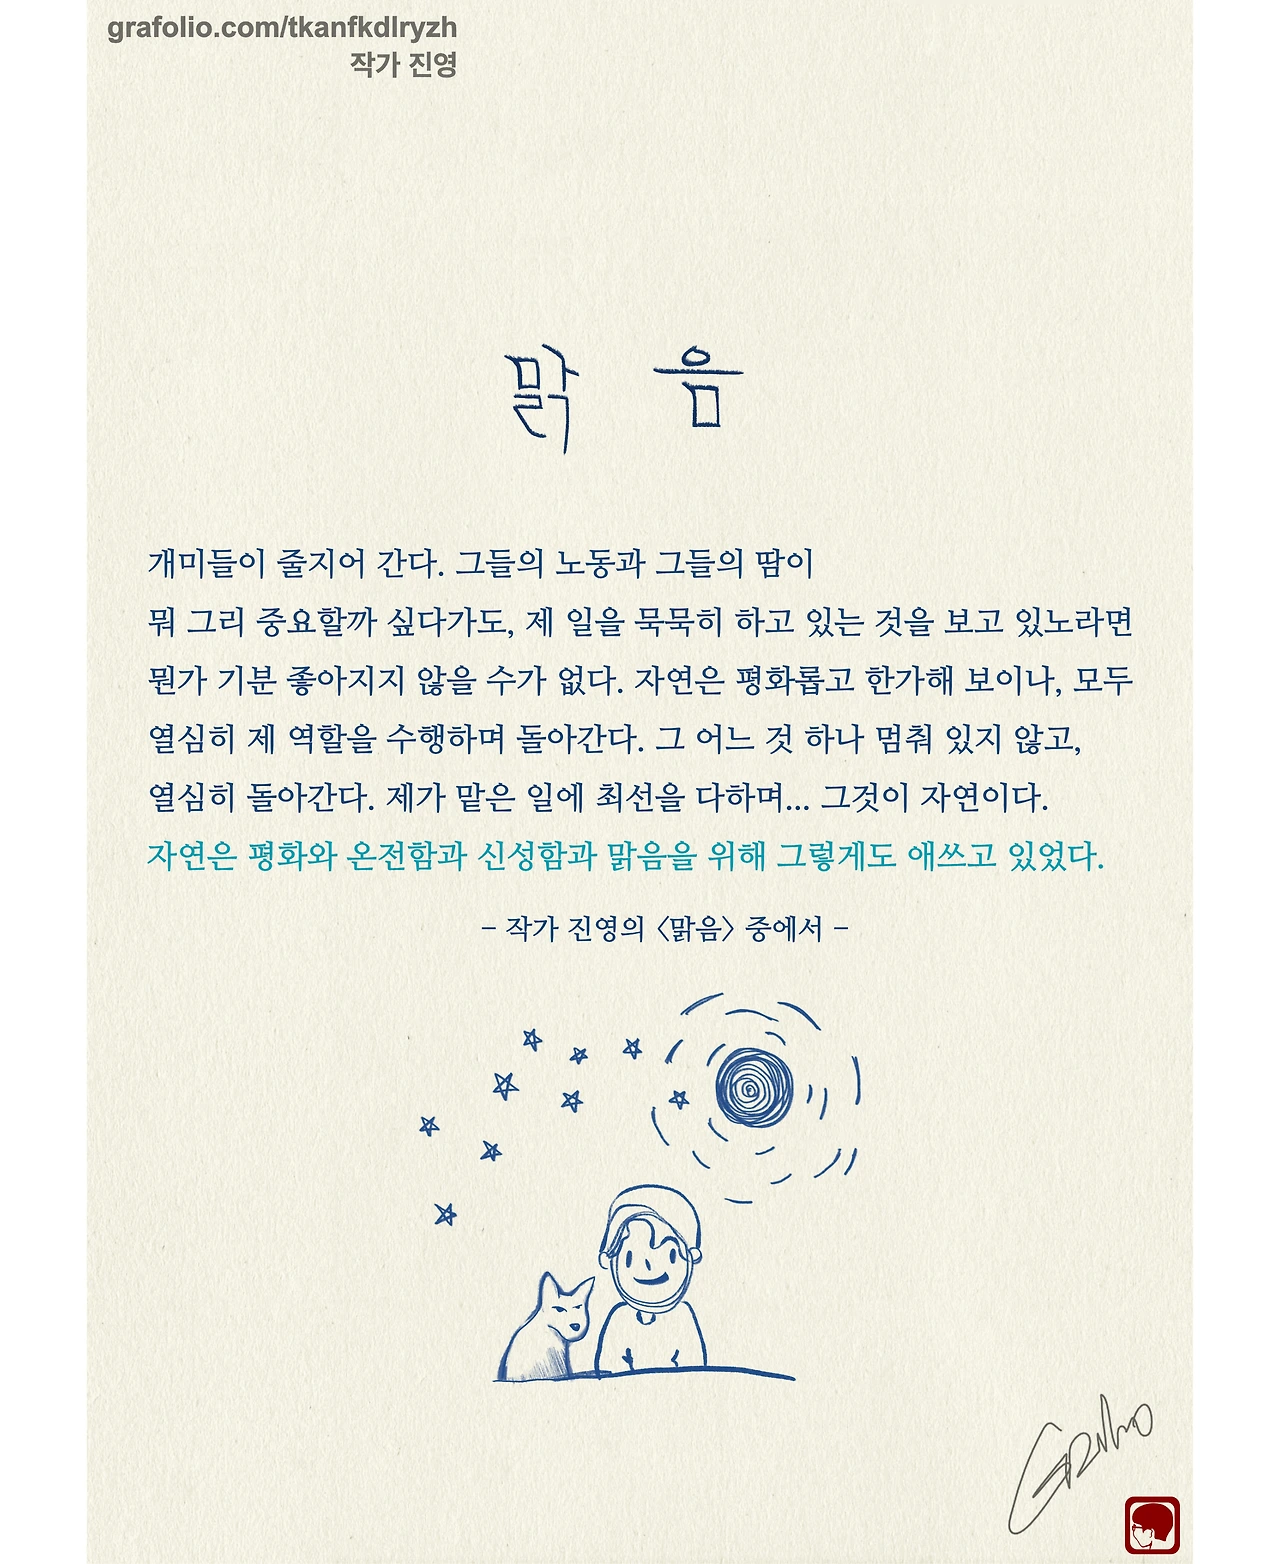 grafolio.com/tkanfkdlryzh
작가 진영
맑 음
개미들이 줄지어 간다. 그들의 노동과 그들의 땀이
뭐 그리 중요할까 싶다가도, 제 일을 묵묵히 하고 있는 것을 보고 있노라면
뭔가 기분 좋아지지 않을 수가 없다. 자연은 평화롭고 한가해 보이나, 모두
열심히 제 역할을 수행하며 돌아간다. 그 어느 것 하나 멈춰 있지 않고,
열심히 돌아간다. 제가 맡은 일에 최선을 다하며... 그것이 자연이다.
자연은 평화와 온전함과 신성함과 맑음을 위해 그렇게도 애쓰고 있었다.
– 작가 진영의 〈맑음〉 중에서 –